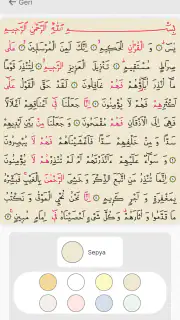 Geri
بِسْمِ اللّٰهِ الرَّحْمٰنِ الرَّحِيمِ
يٰسٓ وَالْقُرْاٰنِ الْحَكِيمِ اِنَّكَ لَمِنَ الْمُرْسَلِينَ عَلٰى
صِرَاطٍ مُسْتَقِيمٍ تَنْزِيلَ الْعَزِيزِ الرَّحِيمِ لِتُنْذِرَ قَوْمًا
مَٓا اُنْذِرَ اٰبَٓاؤُ۬هُمْ فَهُمْ غَافِلُونَ لَقَدْ حَقَّ الْقَوْلُ عَلٰٓى
اَكْثَرِهِمْ فَهُمْ لَا يُؤْمِنُونَ اِنَّا جَعَلْنَا ف۪ٓي اَعْنَاقِهِمْ اَغْلَالًا
فَهِيَ اِلَى الْاَذْقَانِ فَهُمْ مُقْمَحُونَ وَجَعَلْنَا مِنْ بَيْنِ اَيْد۪يهِمْ
سَدًّا وَمِنْ خَلْفِهِمْ سَدًّا فَاَغْشَيْنَاهُمْ فَهُمْ لَا يُبْصِرُونَ
وَسَوَٓاءٌ عَلَيْهِمْ ءَاَنْذَرْتَهُمْ اَمْ لَمْ تُنْذِرْهُمْ لَا يُؤْمِنُونَ
اِنَّمَا تُنْذِرُ مَنِ اتَّبَعَ الذِّكْرَ وَخَشِيَ الرَّحْمٰنَ بِالْغَيْبِ فَبَشِّرْهُ
بِمَغْفِرَةٍ وَاَجْرٍ كَر۪يمٍ اِنَّا نَحْنُ نُحْيِ الْمَوْتٰى وَنَكْتُبُ
مَا قَدَّمُوا وَاٰثَارَهُمْ وَكُلَّ شَيْءٍ اَحْصَيْنَاهُ ف۪ٓي اِمَامٍ مُب۪ينٍ
Sepya